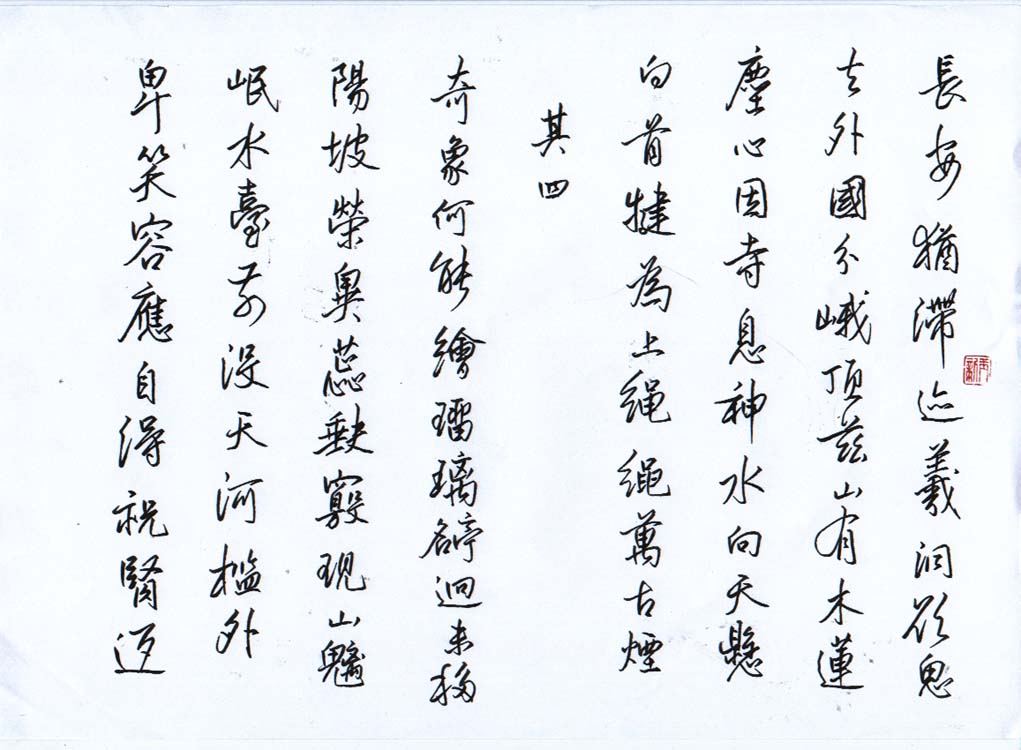 長安猶滯迹羲洞欲思
玄外國分峨頂茲山有木蓮
塵心因寺息神水向天懸
白首犍為上繩繩萬古煙
其四
奇象何能繪瑠璃迴未移
陽坡榮鼻蕊竅現山魑
岷水臺前沒天河檻外
卑笑容應自得祝賢